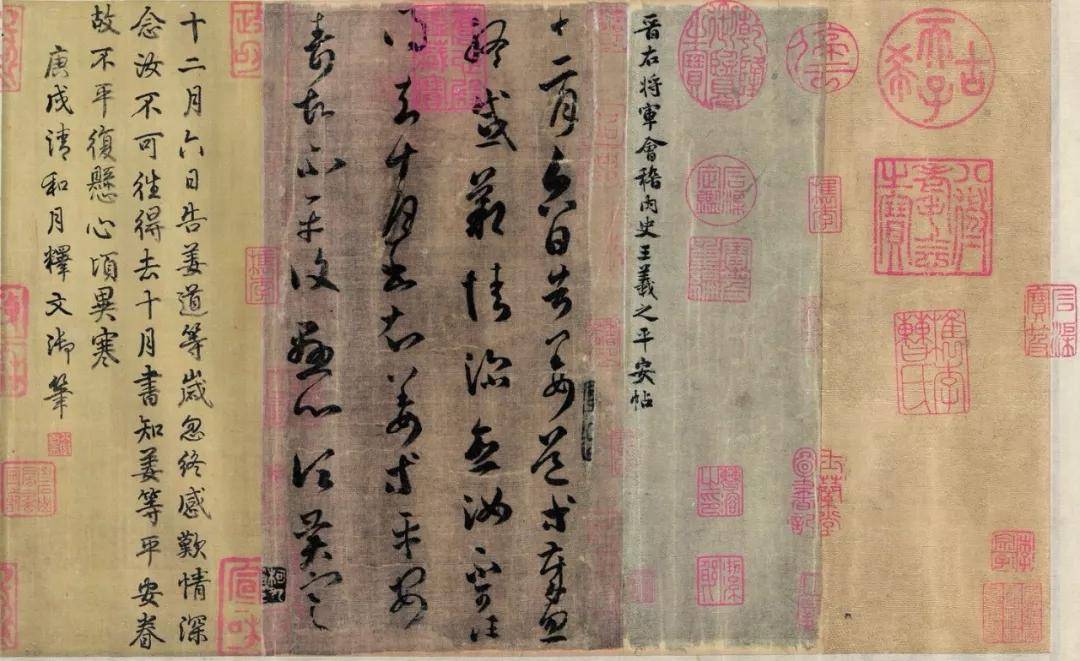 古希天子
八徵耄念之寶
石渠寶笈
玉蘭堂
晋右将軍會稽内史王羲之平安帖
十二月六日告姜道等歲忽
終感歎情深念汝不可往
得去十月書知姜等平安
眷故不平復懸心頃異寒
十二月六日告姜道等歲忽終感歎情深
念汝不可徃得去十月書知姜等平安眷
故不平復懸心頃異寒
庚戌清和月釋文御筆